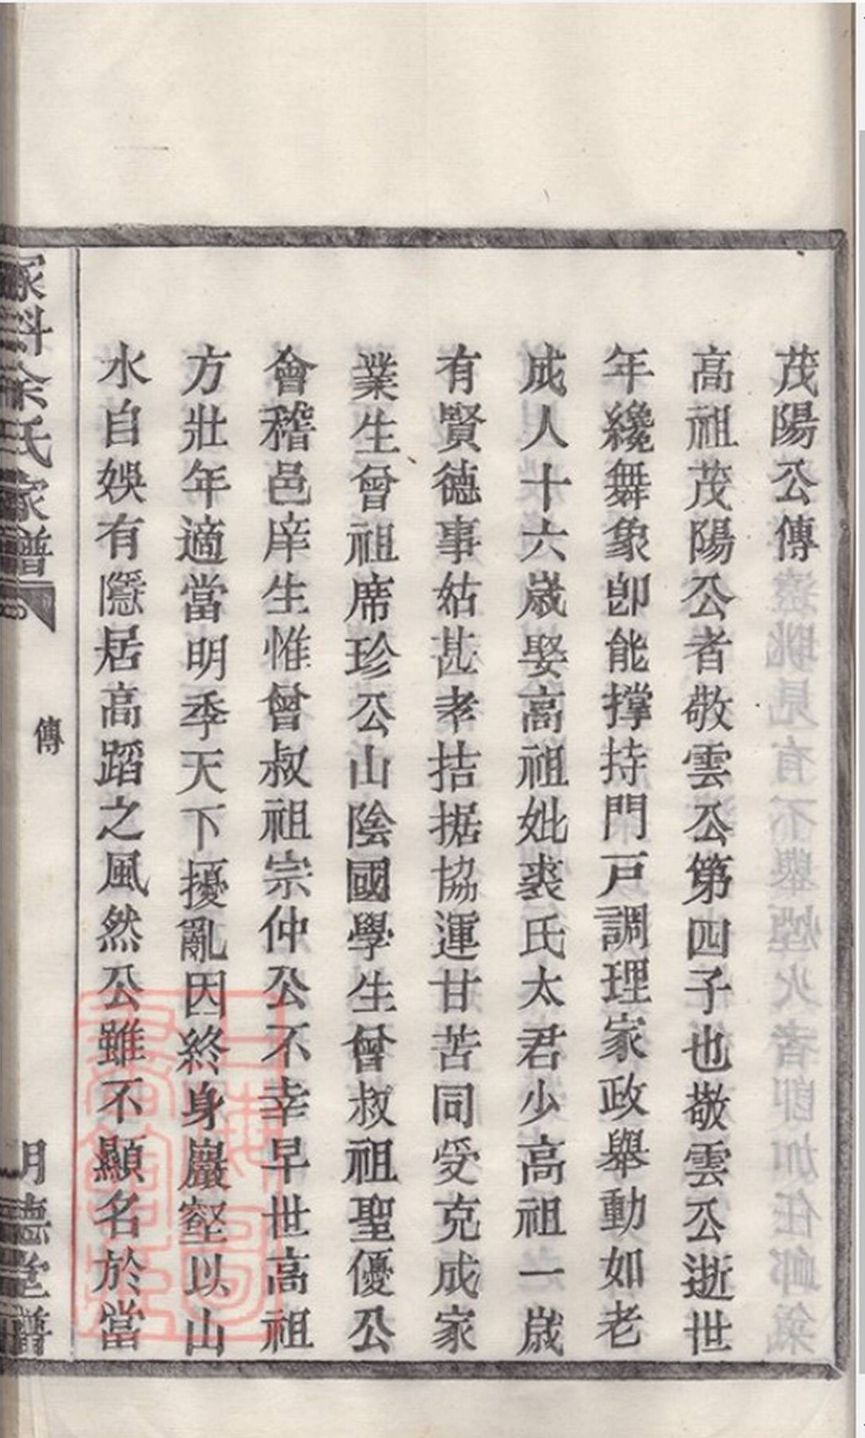 茂陽公傳
高祖茂陽公者敬雲公第四子也敬雲公逝世
年纔舞象卽能撑持門戸調理家政舉動如老
成人十六歲娶高祖妣裘氏太君少高祖一歲
有賢德事姑甚孝拮据協運甘苦同受克成家
業生曾祖席珍公山陰國學生曾叔祖聖優公
會稽邑庠生惟曾叔祖宗仲公不幸早世高祖
方壯年適當明季天下擾亂因終身巖壑以山
水自娛有隱居高蹈之風然公雖不顯名於當
余氏家譜
傳